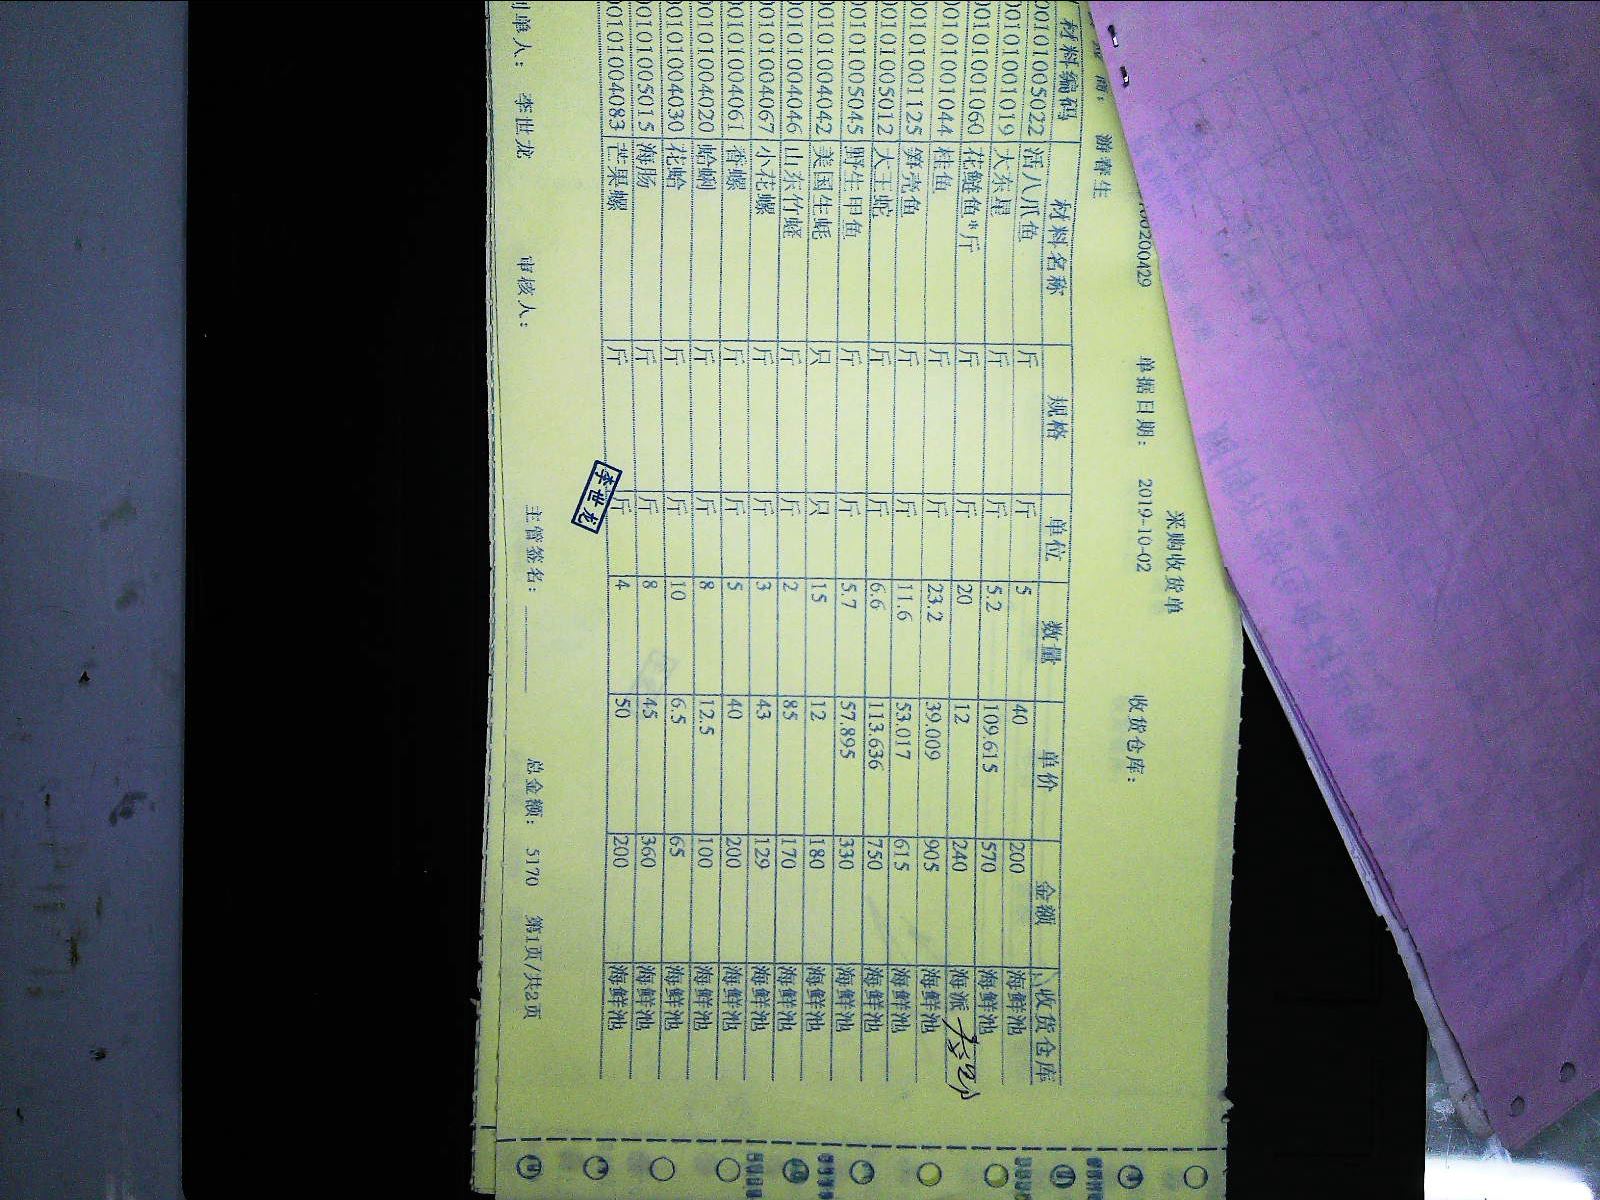 采购收货单
00200429 单据日期： 2019-10-02 收货仓库：
商： 游春生
材料编码 材料名称 规格 单位 数量 单价 金额 收货仓库
00101005022 活八爪鱼 斤 斤 5 40 200 海鲜池
00101001019 大东星 斤 斤 5.2 109.615 570 海鲜池
00101001060 花鲢鱼*斤 斤 斤 20 12 240 海派
00101001044 桂鱼 斤 斤 23.2 39.009 905 海鲜池
00101001125 笋壳鱼 斤 斤 11.6 53.017 615 海鲜池
00101005012 大王蛇 斤 斤 6.6 113.636 750 海鲜池
00101005045 野生甲鱼 斤 斤 5.7 57.895 330 海鲜池
00101004042 美国生蚝 只 只 15 12 180 海鲜池
00101004046 山东竹蛏 斤 斤 2 85 170 海鲜池
00101004067 小花螺 斤 斤 3 43 129 海鲜池
00101004061 香螺 斤 斤 5 40 200 海鲜池
00101004020 蛤蜊 斤 斤 8 12.5 100 海鲜池
00101004030 花蛤 斤 斤 10 6.5 65 海鲜池
00101005015 海肠 斤 斤 8 45 360 海鲜池
00101004083 芒果螺 斤 斤 4 50 200 海鲜池
李世龙
制单人： 李世龙 审核人： 主管签名： 总金额： 5170 第1页/共2页